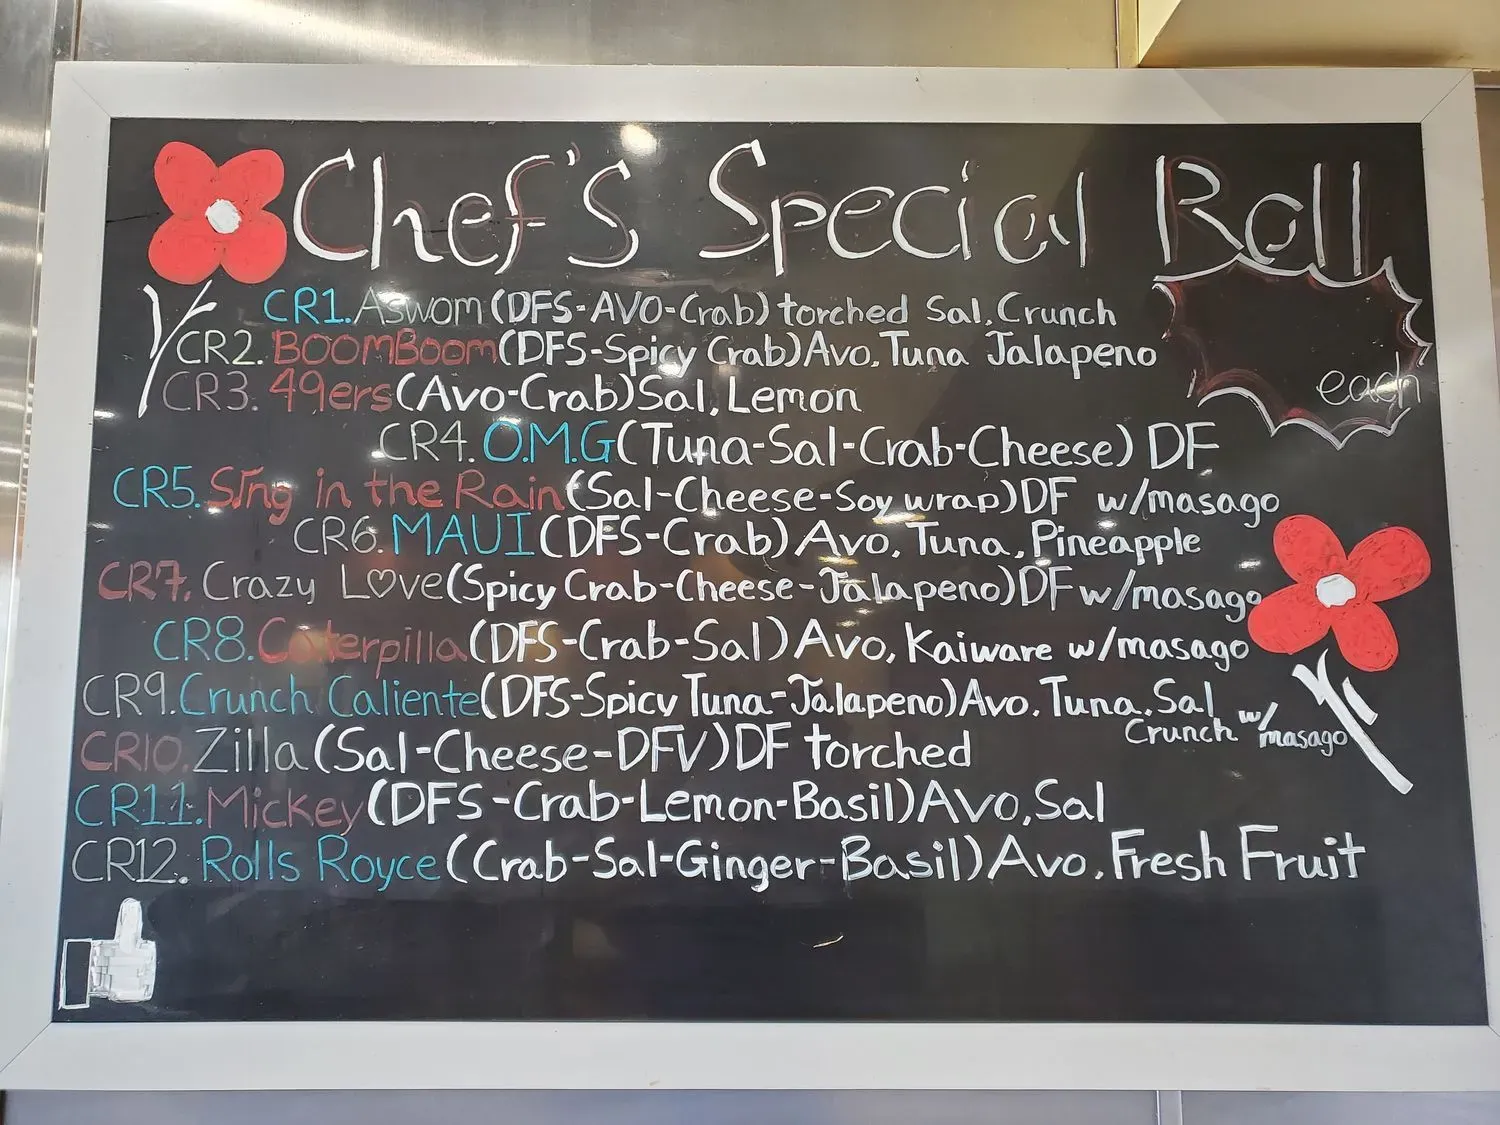 Chef's Special Roll
each
CR1. Aswom (DFS-AVO-Crab) torched Sal, Crunch
CR2. BOOMBOOM (DFS-Spicy Crab) Avo, Tuna Jalapeno
CR3. 49ers (Avo-Crab) Sal, Lemon
CR4. O.M.G (Tuna-Sal-Crab-Cheese) DF
CR5. Sing in the Rain (Sal-Cheese-Soy wrap) DF w/masago
CR6. MAUI (DFS-Crab) Avo, Tuna, Pineapple
CR7. Crazy L♡ve (Spicy Crab-Cheese-Jalapeno) DF w/masago
CR8. Caterpilla (DFS-Crab-Sal) Avo, Kaiware w/masago
CR9. Crunch Caliente (DFS-Spicy Tuna-Jalapeno) Avo, Tuna, Sal
Crunch w/masago
CR10. Zilla (Sal-Cheese-DFV) DF torched
CR11. Mickey (DFS-Crab-Lemon-Basil) Avo, Sal
CR12. Rolls Royce (Crab-Sal-Ginger-Basil) Avo, Fresh Fruit